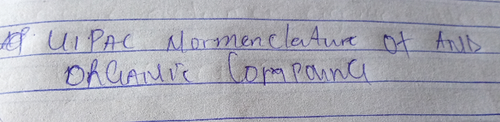 UIPAC Normenclature of AND
ORGANIC Compound